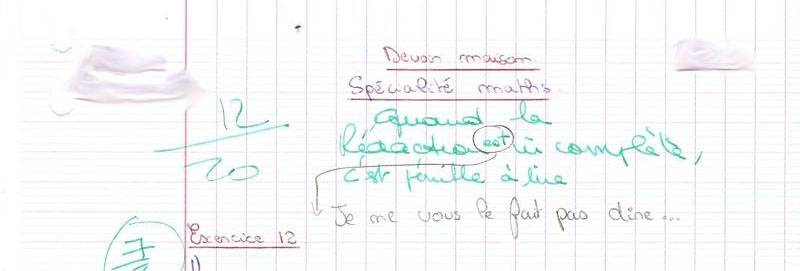 Devoir maison.
Spécialité maths.
12
20
Quand la
Rédaction est incomplète,
c'est pénible à lire
Je ne vous le fait pas dire...
Exercice 12
7
1)